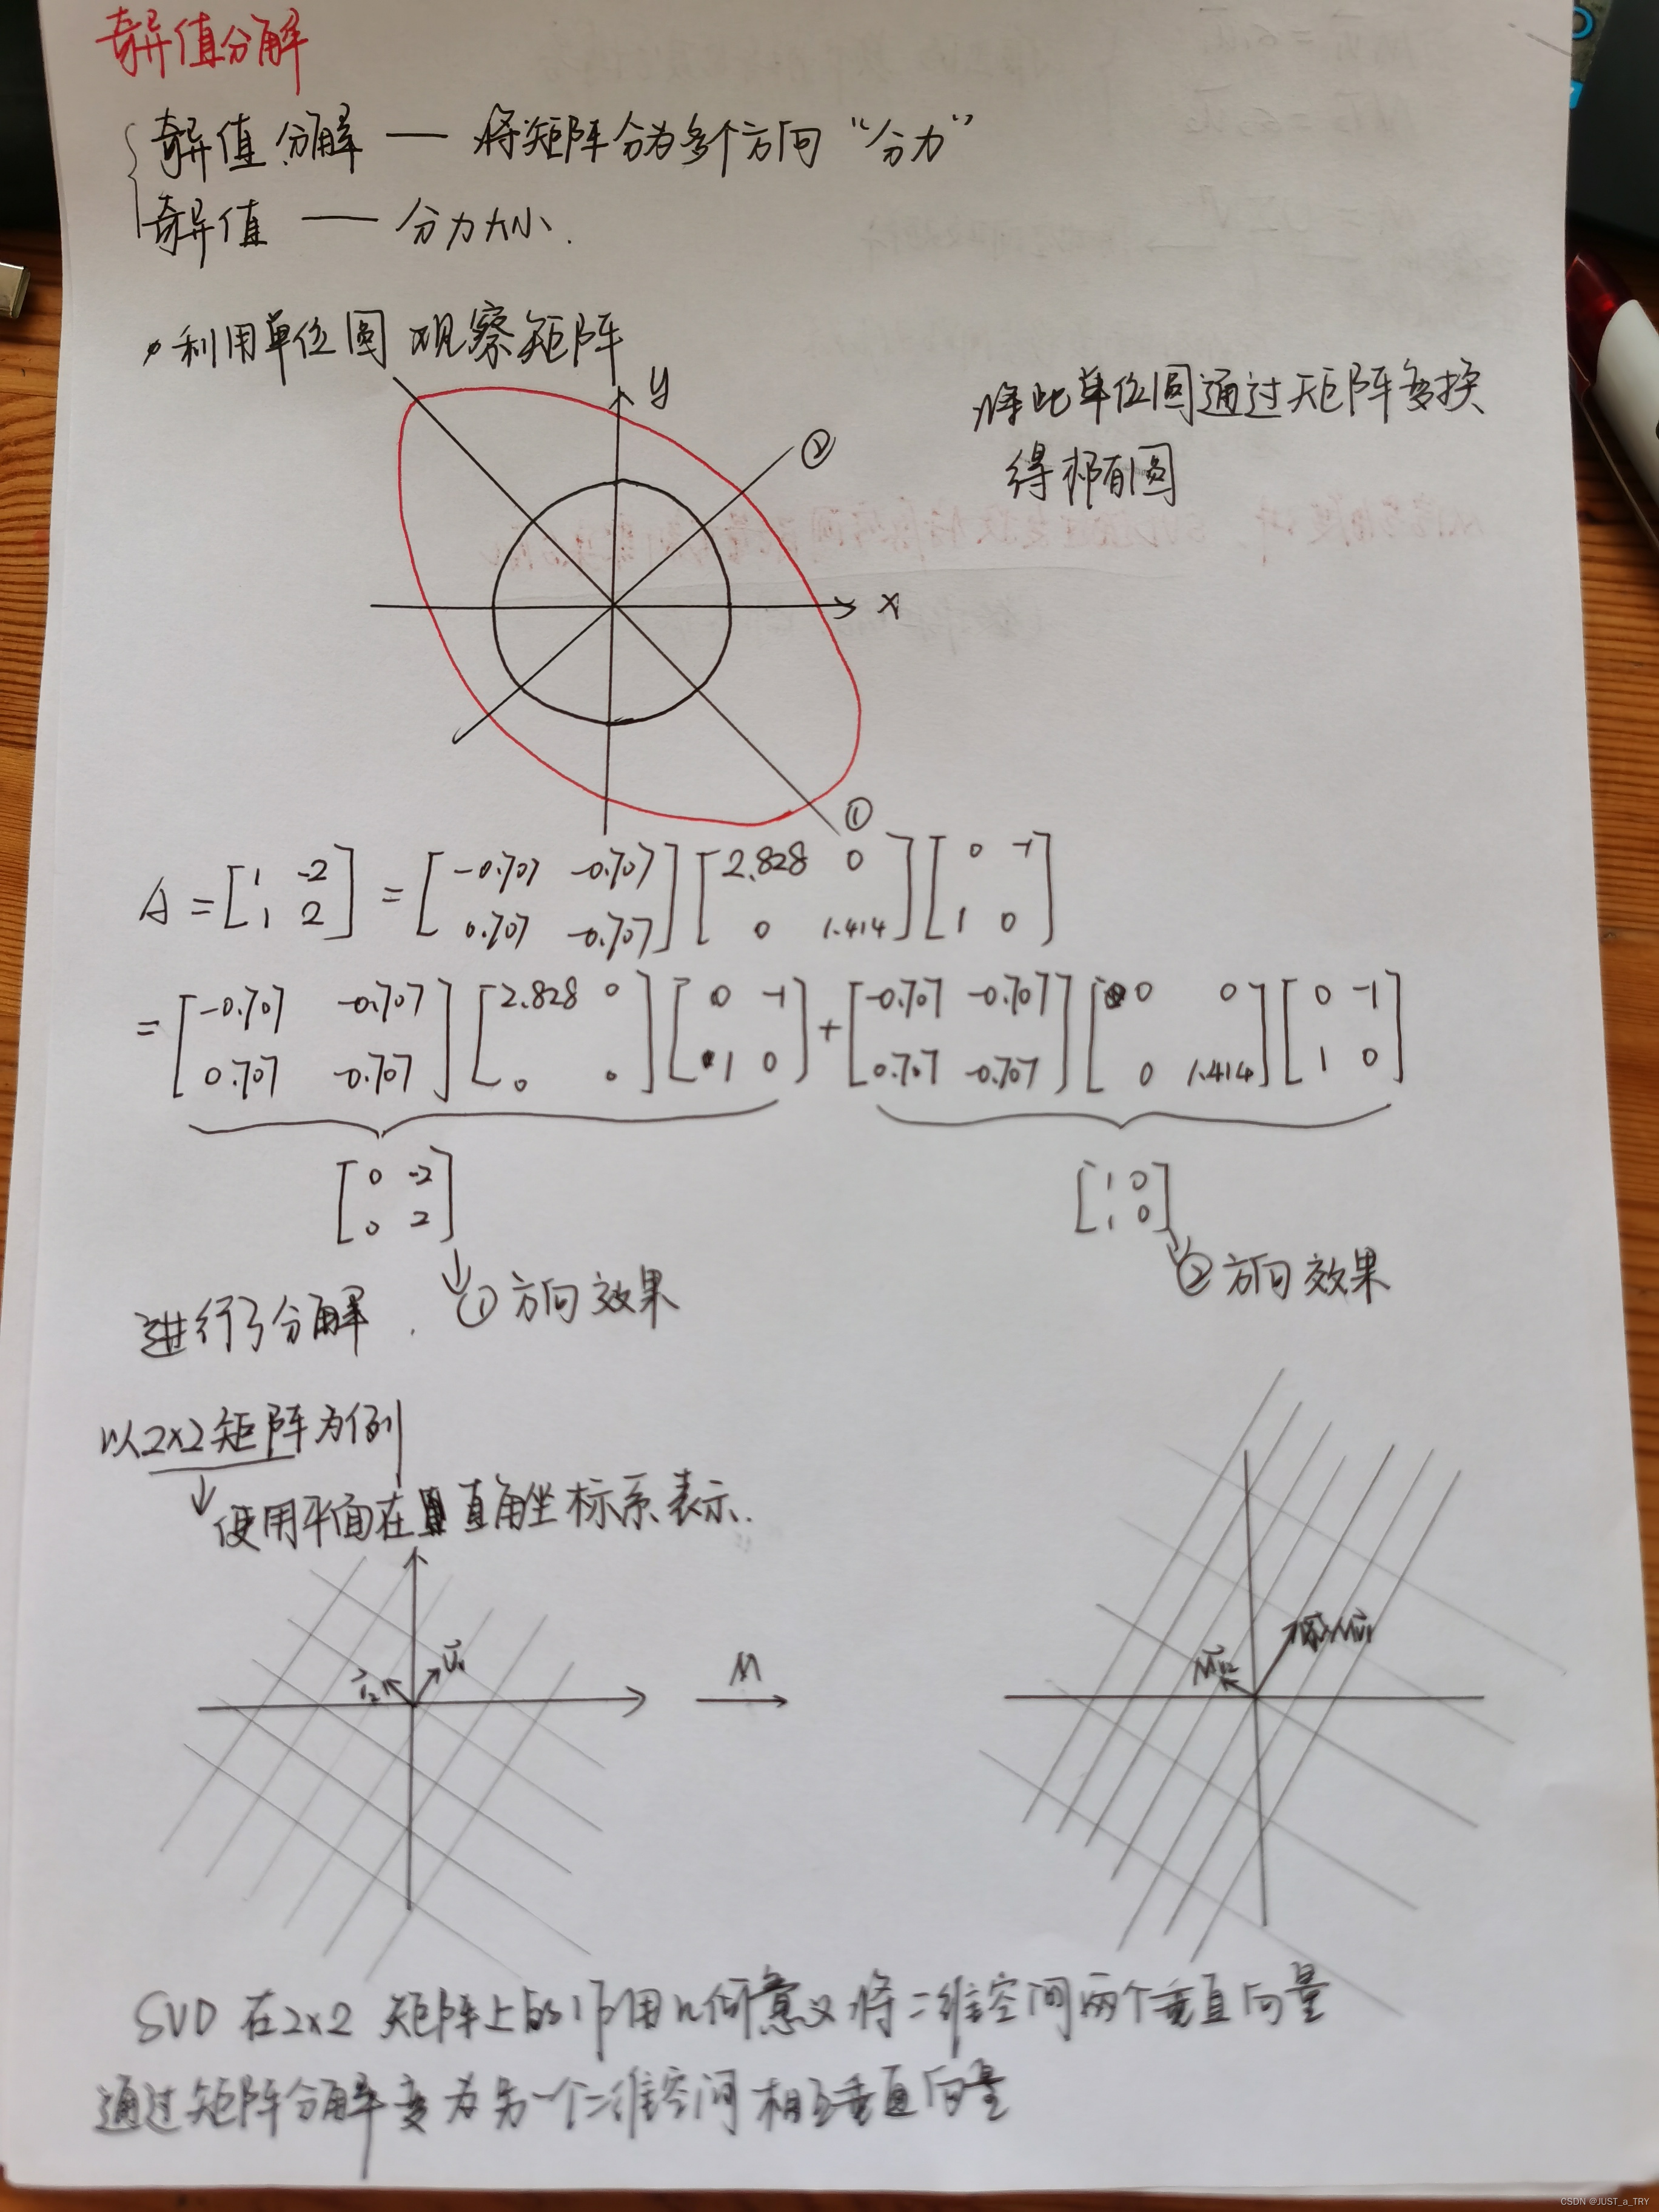 奇异值分解
奇异值分解 — 将矩阵分为多个方向 "分力"
奇异值 — 分力大小.
利用单位圆 观察矩阵
y
② 
将此单位圆通过矩阵变换
得椭圆
x
①
A = [1 -2; 1 2] = [-0.707 -0.707; 0.707 -0.707] [2.828 0; 0 1.414] [0 -1; 1 0]
= [-0.707 -0.707; 0.707 -0.707] [2.828 0; 0 0] [0 -1; 1 0] + [-0.707 -0.707; 0.707 -0.707] [0 0; 0 1.414] [0 -1; 1 0]
[0 -2; 0 2] [1 0; 1 0]
进行了分解. ①方向效果 ②方向效果
以2×2矩阵为例
使用平面在直角坐标系表示.
M
SVD 在2×2 矩阵上的作用几何意义将二维空间两个垂直向量
通过矩阵分解变为另一个二维空间相互垂直向量
CSDN @JUST_a_TRY